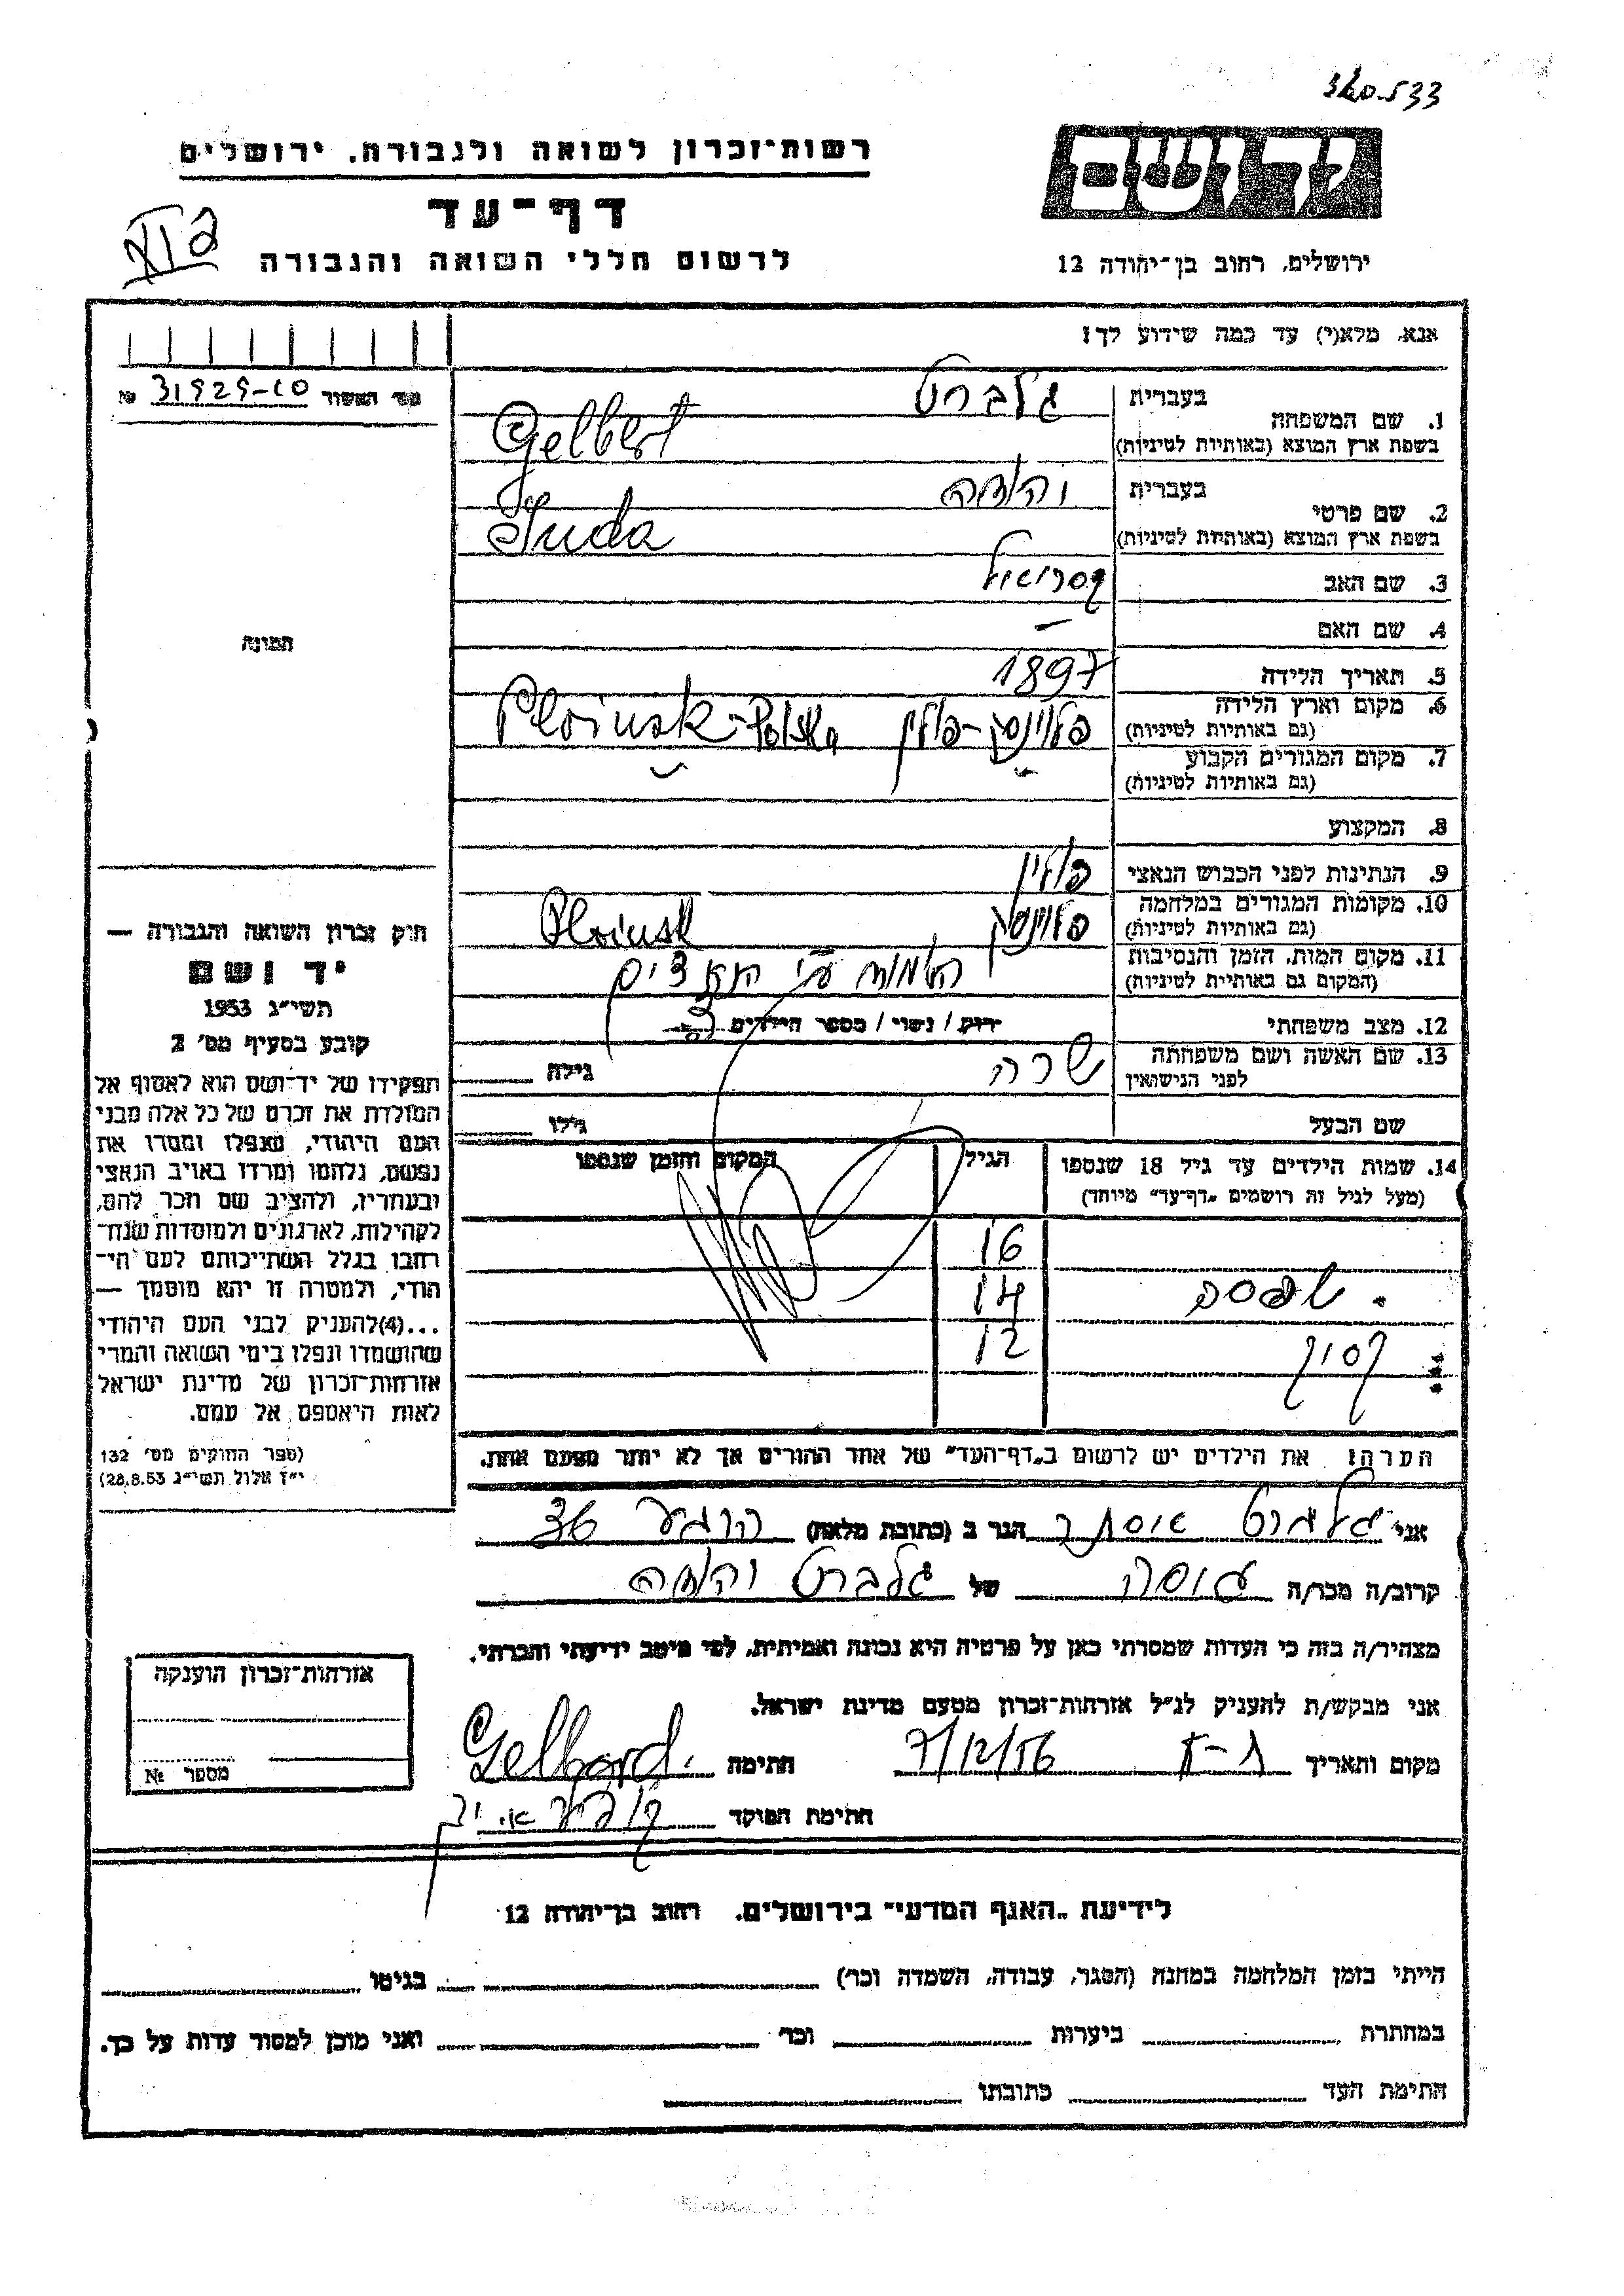 רשות-זכרון לשואה ולגבורה, ירושלים
דף-עד
לרשום חללי השואה והגבורה
יד ושם
ירושלים, רחוב בן-יהודה 12
אנא, מלא(י) עד כמה שידוע לך!
מס' השאלון № 31929-10
1. שם המשפחה
בעברית גלברט
בשפת ארץ המוצא (באותיות לטיניות) Gelbert
2. שם פרטי
בעברית יהודה
בשפת ארץ המוצא (באותיות לטיניות) Juda
3. שם האב
4. שם האם -
5. תאריך הלידה 1897
6. מקום וארץ הלידה פלוינסק-פולין Ploinsk-Polska
(גם באותיות לטיניות)
7. מקום המגורים הקבוע
(גם באותיות לטיניות)
8. המקצוע
9. הנתינות לפני הכבוש הנאצי פולין
10. מקומות המגורים במלחמה פלוינסק Ploinsk
(גם באותיות לטיניות)
11. מקום המות, הזמן והנסיבות הושמד ע"י הנאצים
(המקום גם באותיות לטיניות)
12. מצב משפחתי רווק / נשוי / מספר הילדים 3
13. שם האשה ושם משפחתה שרה גילה
לפני הנישואין
שם הבעל גילו
14. שמות הילדים עד גיל 18 שנספו הגיל המקום והזמן שנספו
(מעל לגיל זה רושמים "דף-עד" מיוחד)
16
14
12
הערה! את הילדים יש לרשום ב"דף-העד" של אחד ההורים אך לא יותר מפעם אחת.
תמונה
חוק זכרון השואה והגבורה —
יד ושם
תשי"ג 1953
קובע בסעיף מס' 2
תפקידו של יד-ושם הוא לאסוף אל
המולדת את זכרם של כל אלה מבני
העם היהודי, שנפלו ומסרו את
נפשם, נלחמו ומרדו באויב הנאצי
ובעוזריו, ולהציב שם וזכר להם,
לקהילות, לארגונים ולמוסדות שנח-
רבו בגלל השתייכותם לעם הי-
הודי, ולמטרה זו יהא מוסמך —
...(4) להעניק לבני העם היהודי
שהושמדו ונפלו בימי השואה והמרי
אזרחות-זכרון של מדינת ישראל
לאות היאספם אל עמם.
(ספר החוקים מס' 132
י"ז אלול תשי"ג 28.8.53)
אני גלברט אסתר הגר ב (כתובת מלאה) 36
קרוב/ה מכר/ה של גלברט יהודה
מצהיר/ה בזה כי העדות שמסרתי כאן על פרטיה היא נכונה ואמיתית, לפי מיטב ידיעתי והכרתי.
אני מבקש/ת להעניק לנ"ל אזרחות-זכרון מטעם מדינת ישראל.
מקום ותאריך 7/12/56 חתימה Gelbard
חתימת הפוקד
אזרחות-זכרון הוענקה
מספר №
לידיעת "האגף המדעי" בירושלים, רחוב בן-יהודה 12
הייתי בזמן המלחמה במחנה (הסגר, עבודה, השמדה וכר') בגיטו
במחתרת ביערות וכר' ואני מוכן למסור עדות על כך.
חתימת העד כתובתו